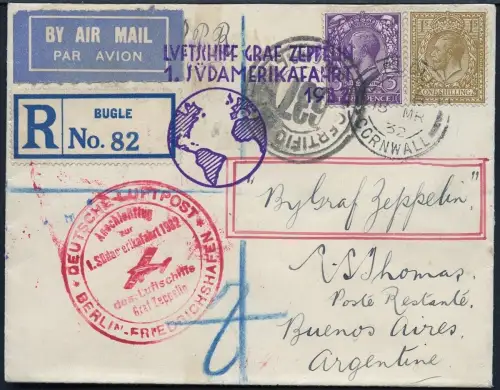 BY AIR MAIL
PAR AVION
LUFTSCHIFF GRAF ZEPPELIN
1. SÜDAMERIKAFAHRT
19
PENCE
ONE SHILLING
BUGLE
R No. 82
CERTIFIC
MR
32
CORNWALL
"By Graf Zeppelin."
DEUTSCHE LUFTPOST
Anschlussflug
zur
1. Südamerikafahrt 1932
des Luftschiffs
Graf Zeppelin
BERLIN-FRIEDRICHSHAFEN
R S Thomas.
Poste Restanté.
Buenos Aires.
Argentine